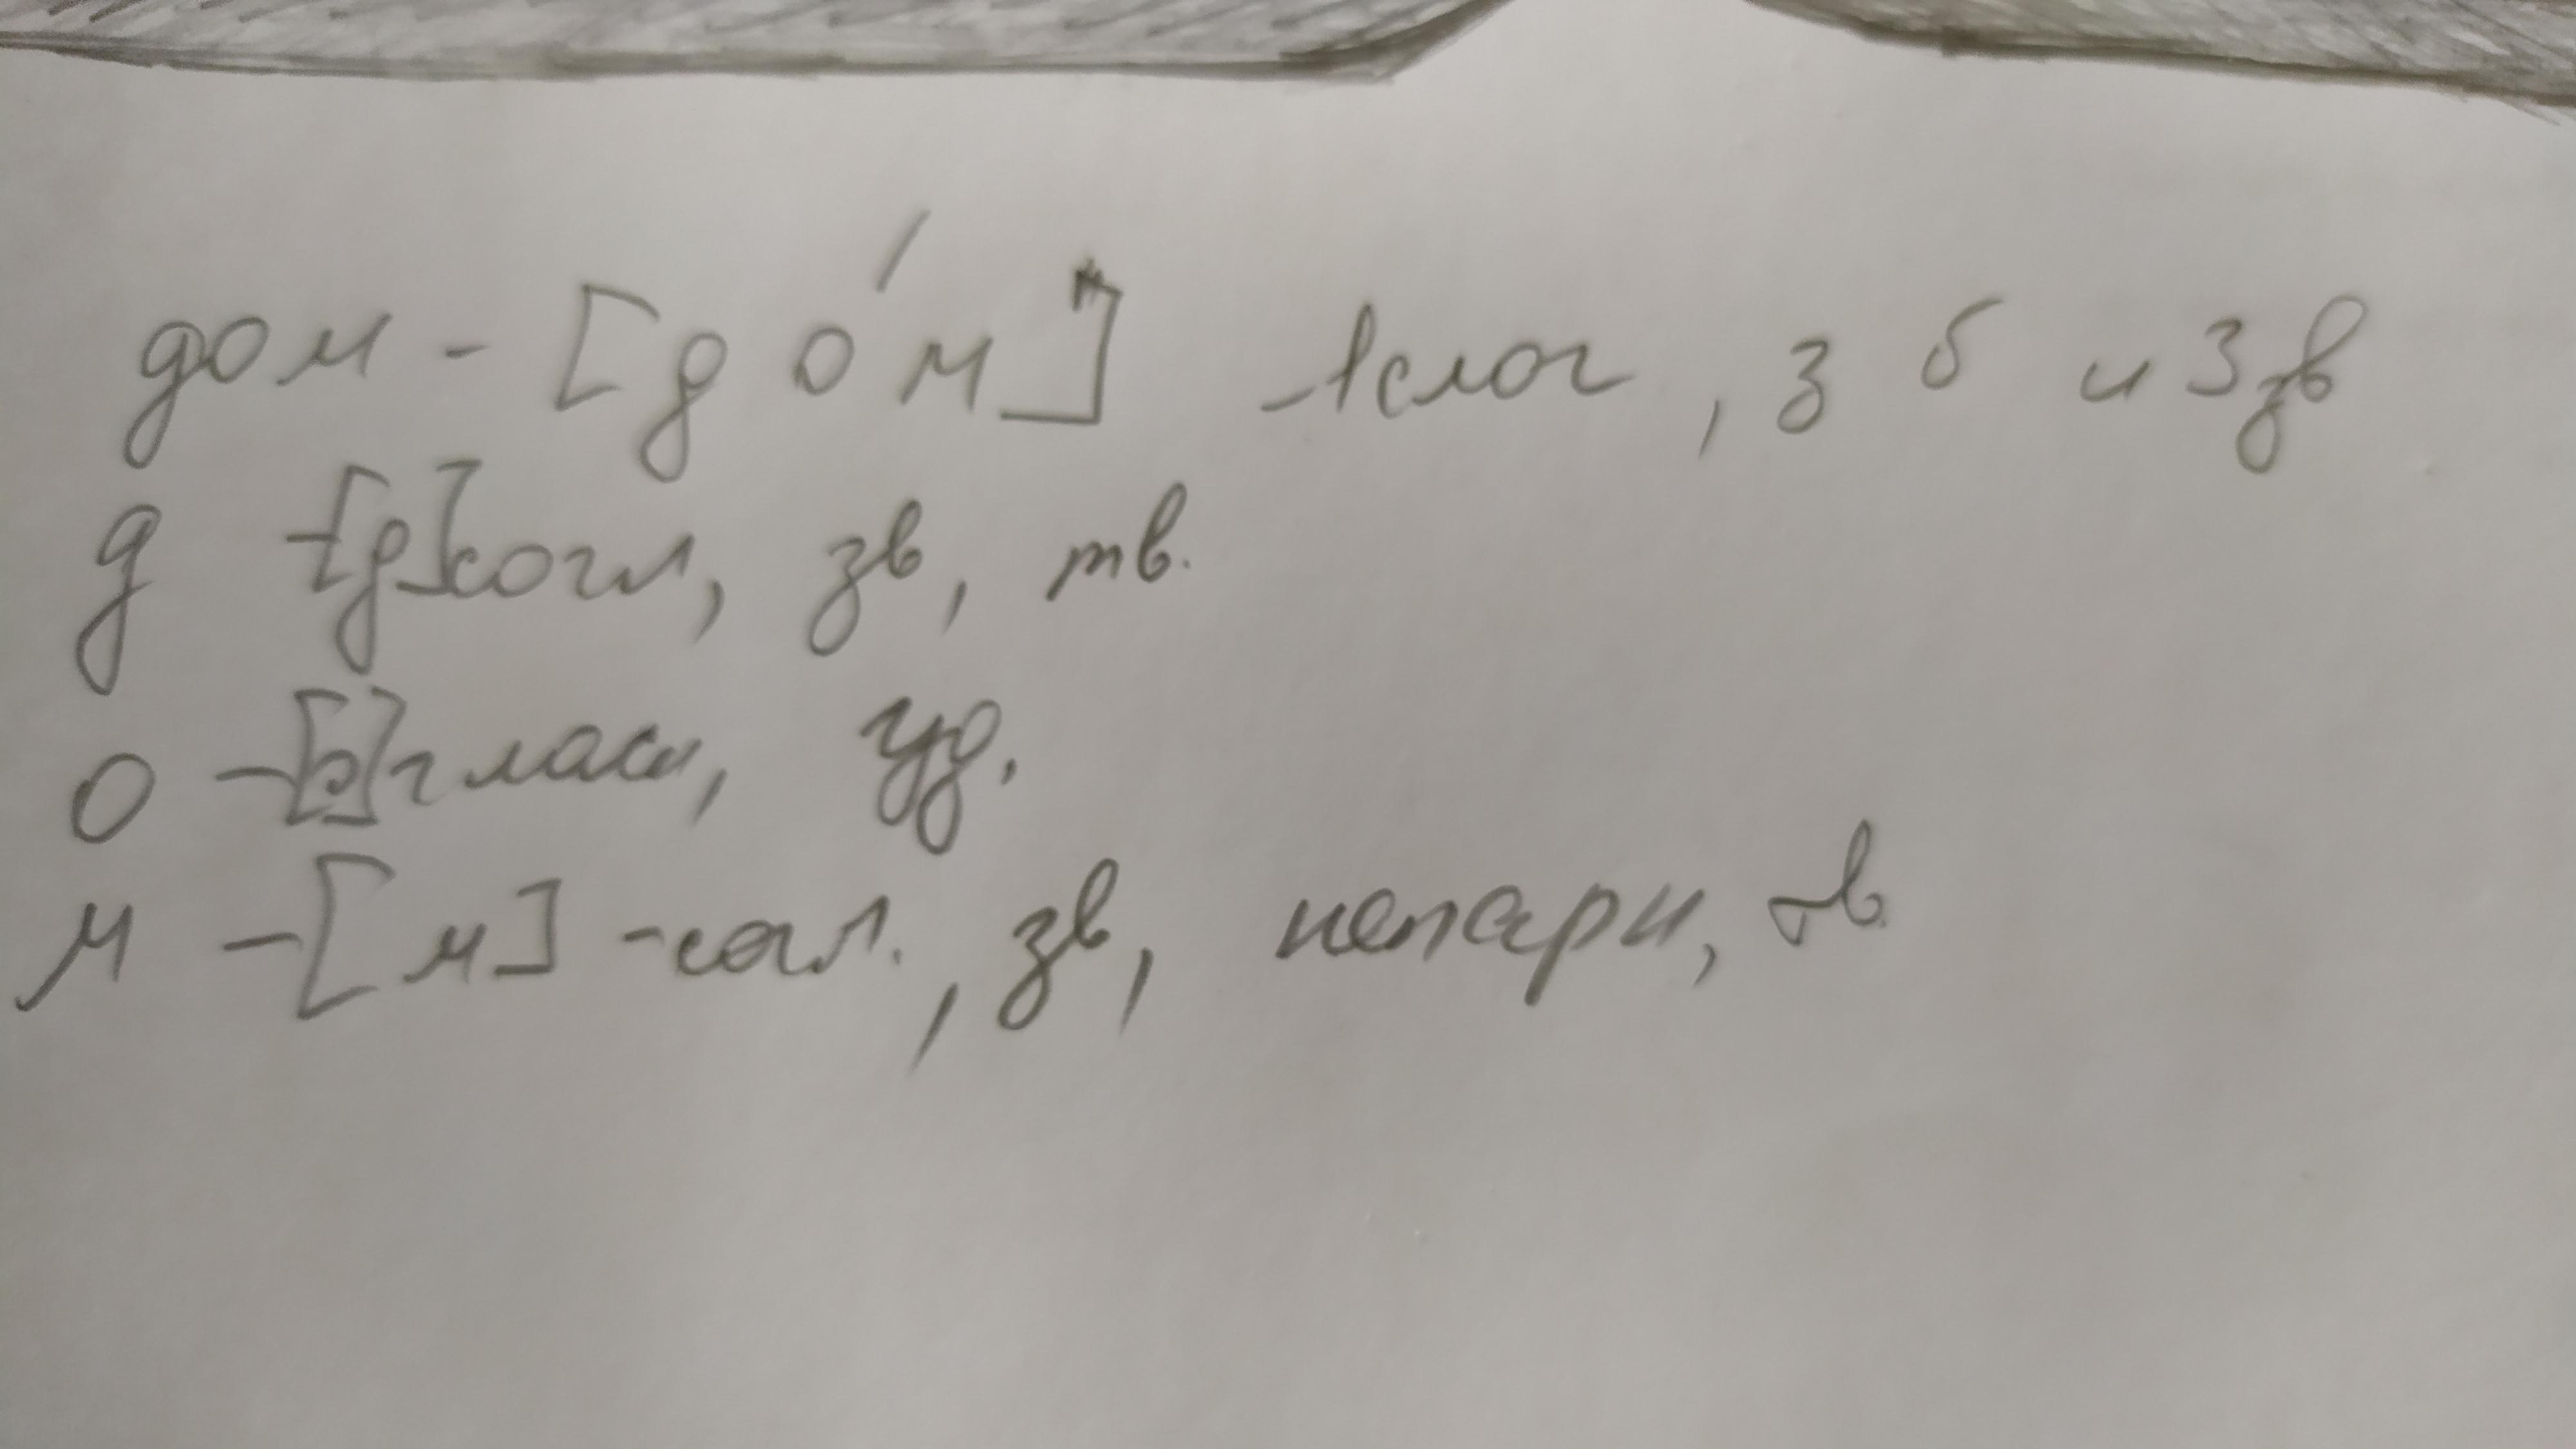 дом - [до́м] - 1 слог, 3 б и 3 зв
д - [д] согл, зв, тв.
о - [о] гласн, уд.
м - [м] - согл., зв, непарн, тв